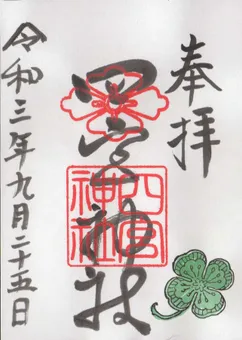 奉拝
四宮神社
四宮神社
令和三年九月二十五日